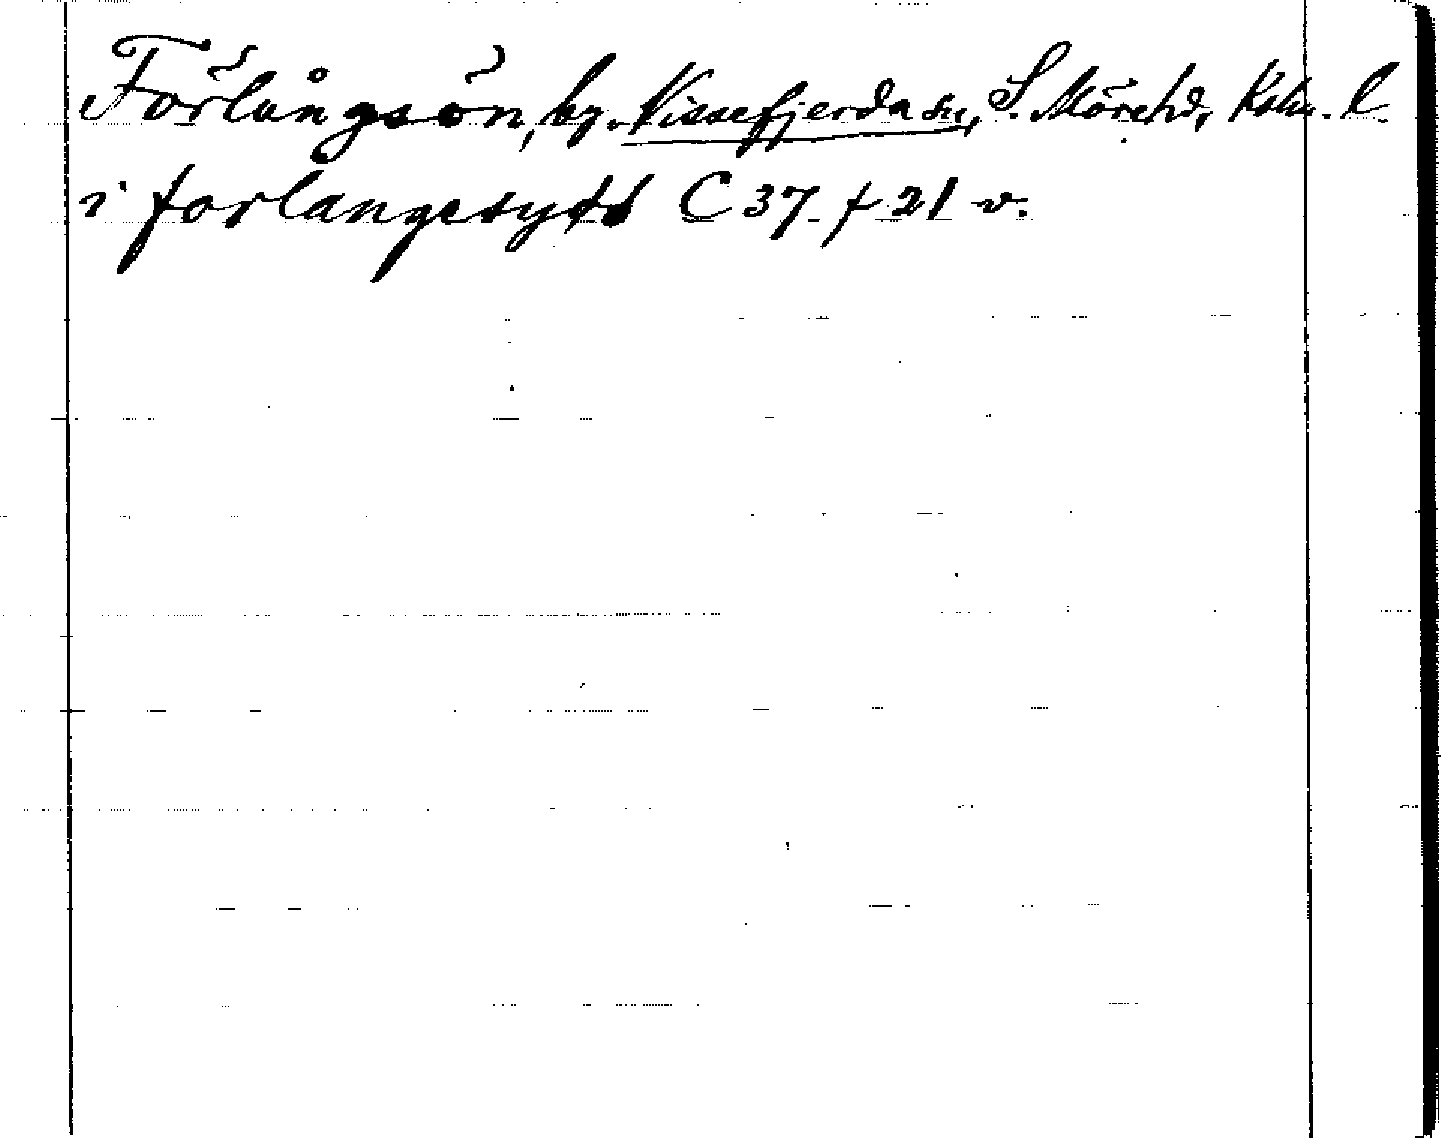 Förlångsön, by. Vissefjerda sn, S. Möre hd, Kalm. l.
i forlangesydh C 37 f 21 v.